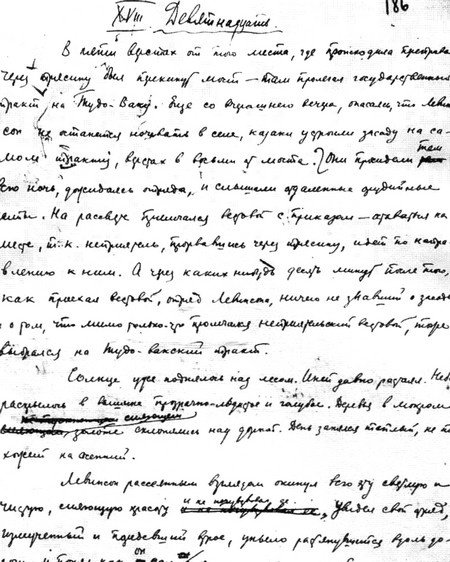 186
XVIII Девятнадцать.
В пяти верстах от того места, где происходила переправа
через трясину был перекинут мост — там пролегал государственный
тракт на Тудо-Ваку. Еще со вчерашнего вечера, опасаясь, что Левин-
сон не останется ночевать в селе, казаки устроили засаду на са-
мом тракту, верстах в восьми от моста. Они просидели там
всю ночь, дожидаясь отряда, и слышали отдаленные орудийные
залпы. На рассвете примчался вестовой с приказом — остаться на
месте, т.к. неприятель, прорвавшись через трясину, идет по напра-
влению к ним. А через каких-нибудь десять минут после того,
как проехал вестовой, отряд Левинсона, ничего не знавший о засаде
и о том, что мимо только-что промчался неприятельский вестовой, тоже
выбрался на Тудо-Вакский тракт.
Солнце уже поднялось над лесом. Иней давно растаял. Небо
раскрылось в вышине прозрачно-льдистое и голубое. Деревья в мокром
сияющем
золоте склонялись над дорогой. День занялся теплый, не по-
хожий на осенний.
Левинсон рассеянным взглядом окинул всю эту светлую и
чистую, сияющую красоту и не почувствовал ее. Увидел свой отряд,
измученный и поредевший втрое, уныло растянувшийся вдоль до-
роги, и понял как он